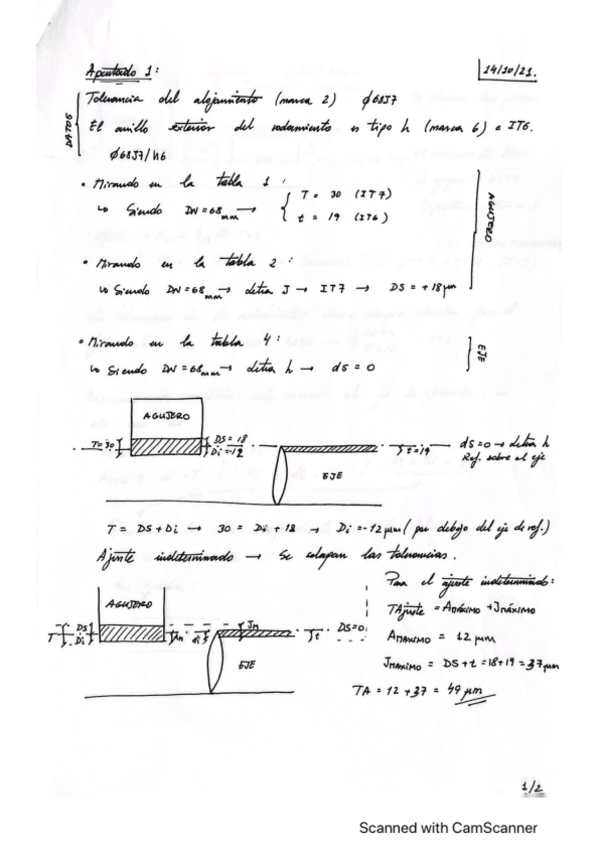 Apartado 1:
14/10/21.
DATOS
Tolerancia del alojamiento (marca 2) ϕ68J7
El anillo exterior del rodamiento es tipo h (marca 6) e IT6.
ϕ68J7/h6
• Mirando en la tabla 1:
↳ Siendo DN=68mm → { T = 30 (IT7)
t = 19 (IT6)
AGUJERO
• Mirando en la tabla 2:
↳ Siendo DN=68mm → letra J → IT7 → DS = +18μm
• Mirando en la tabla 4:
↳ Siendo DN=68mm → letra h → ds = 0
EJE
AGUJERO
T=30
DS=18
Di=-12
EJE
t=19
ds=0 → letra h
Ref. sobre el eje
T = DS + Di → 30 = Di + 18 → Di = -12 μm (por debajo del eje de ref.)
Ajuste indeterminado → Se solapan las tolerancias.
AGUJERO
T
DS
Di
Am
di
Jm
t
DS=0
EJE
Para el ajuste indeterminado:
TAjuste = Amáximo + Jmáximo
AMÁXIMO = 12 μm
JMAXIMO = DS + t = 18+19 = 37 μm
TA = 12 + 37 = 49 μm
1/2
Scanned with CamScanner